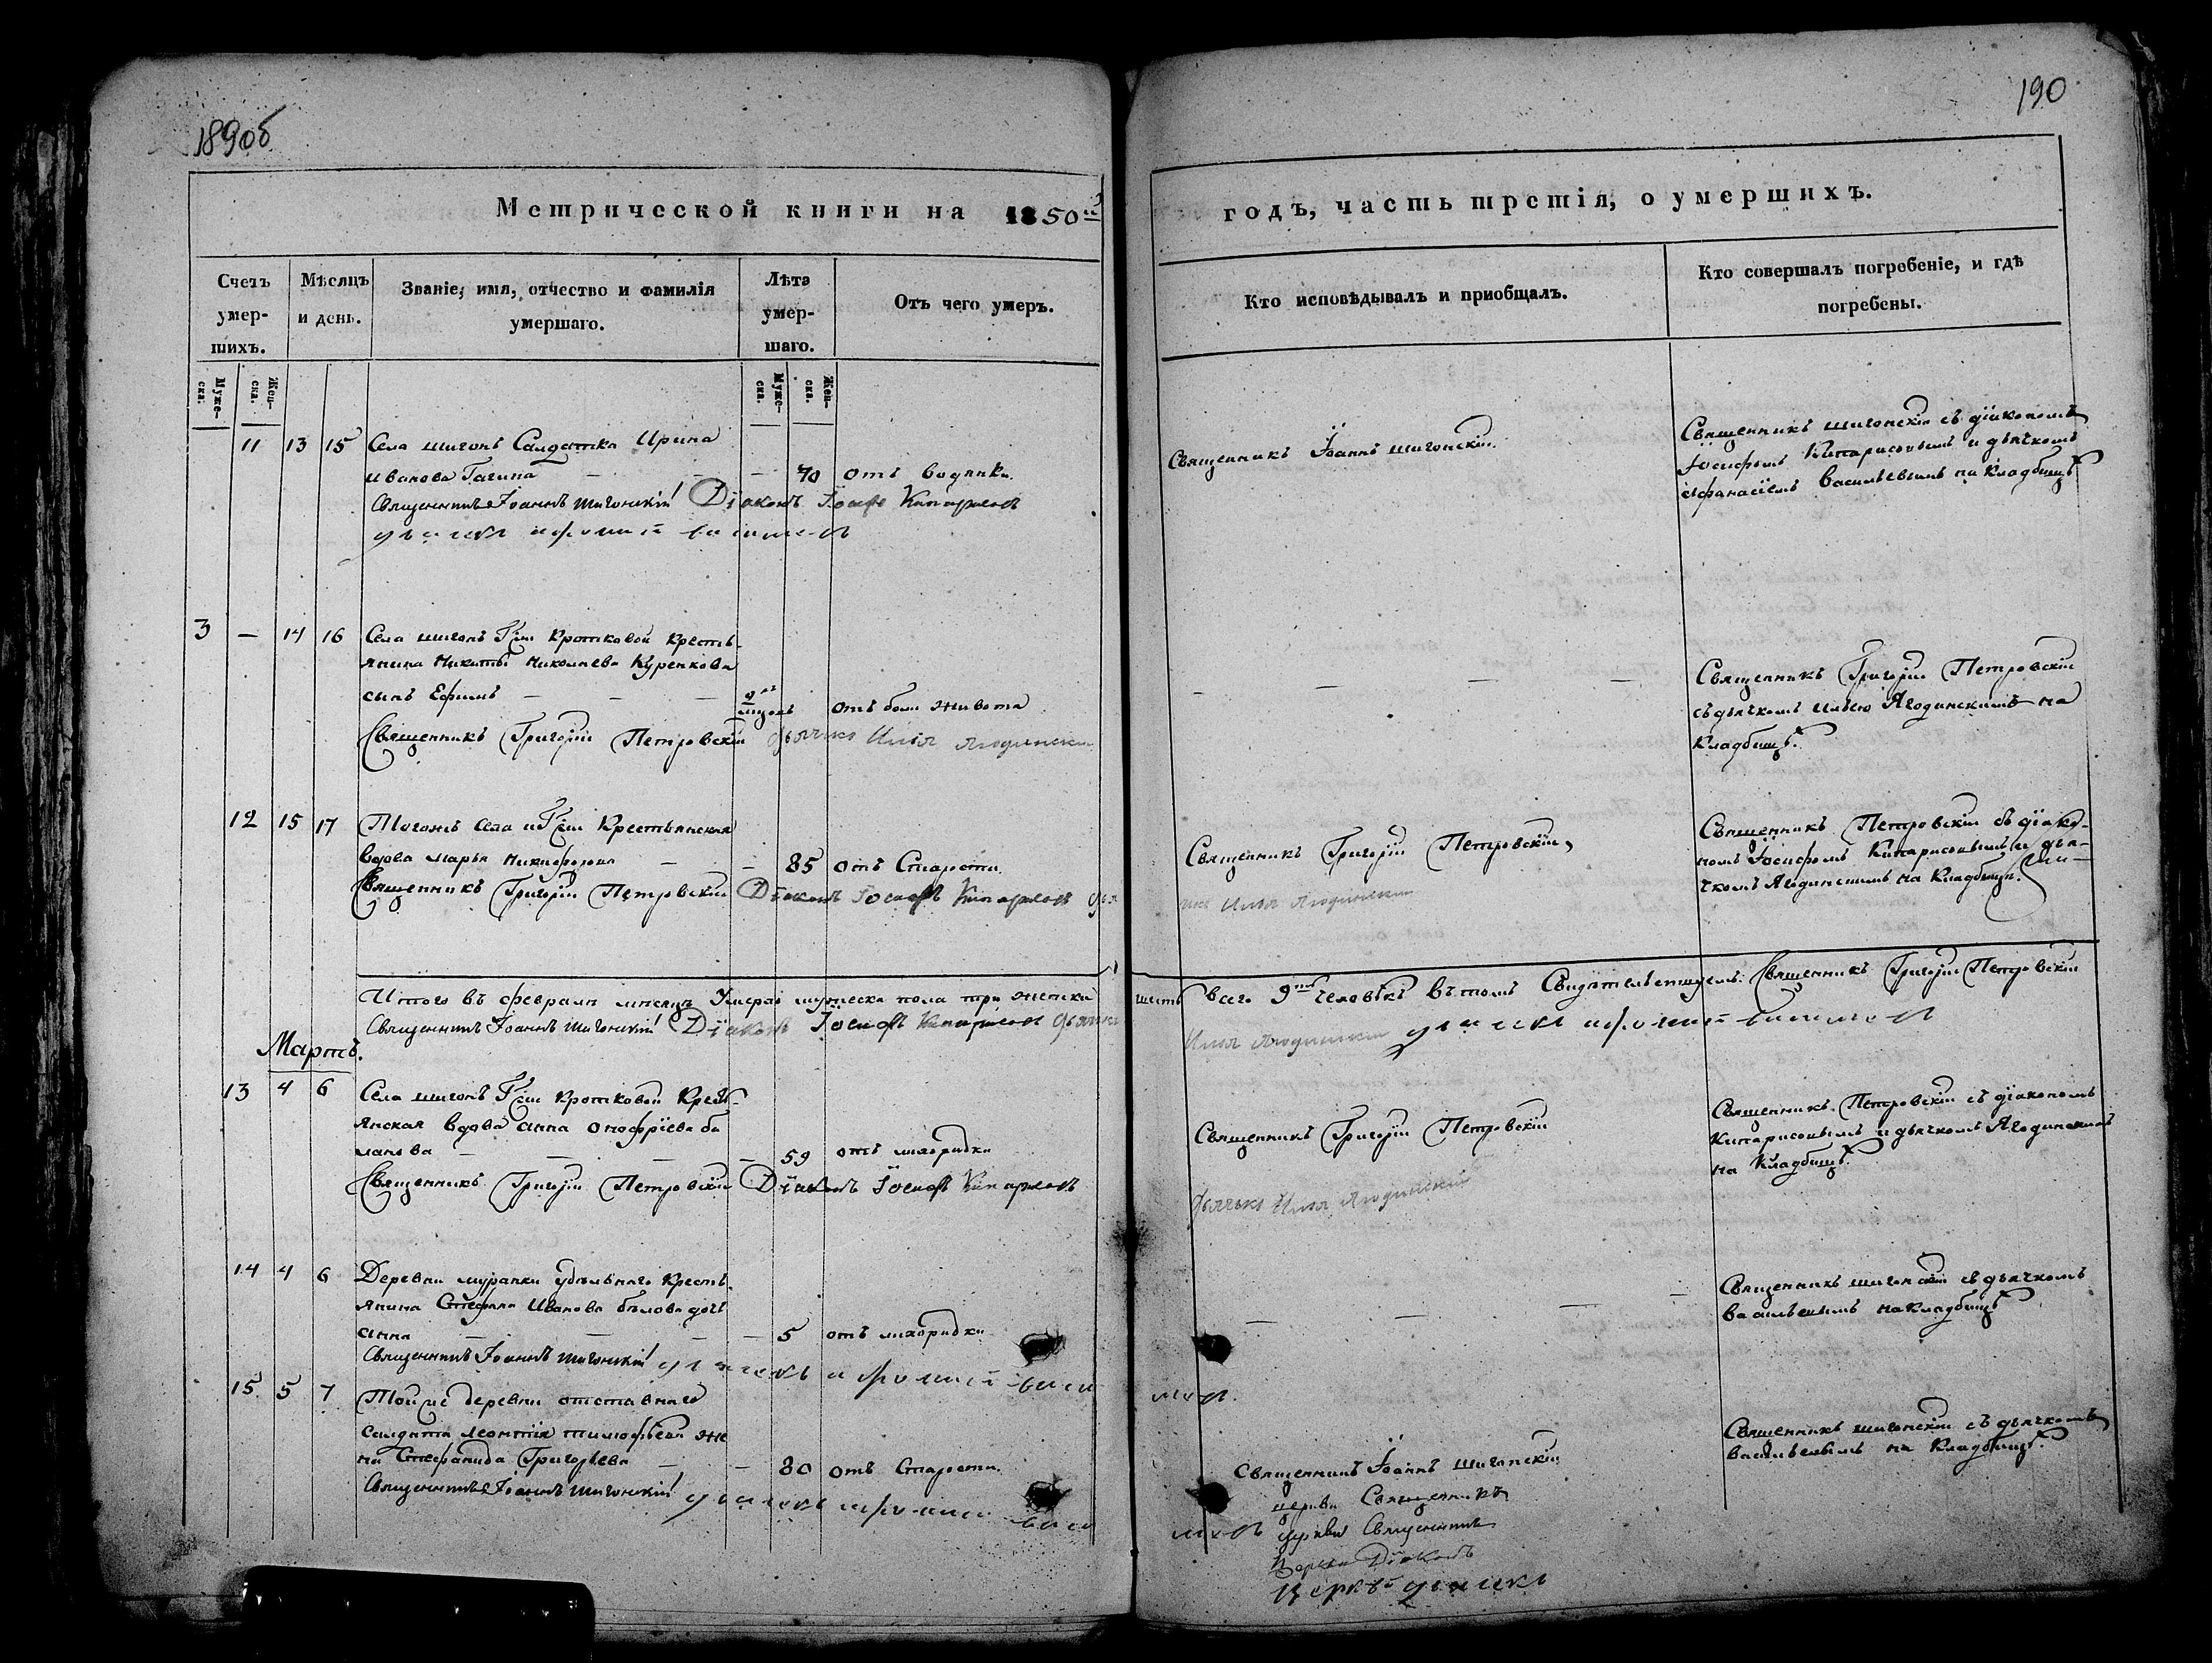 189об
190
Метрической книги на 1850й
годъ, часть третія, о умершихъ.
Счетъ умер-
шихъ.
Мѣсяцъ
и день.
Званіе, имя, отчество и фамилія
умершаго.
Лѣта
умер-
шаго.
Отъ чего умеръ.
Кто исповѣдывалъ и приобщалъ.
Кто совершалъ погребеніе, и гдѣ
погребены.
Муже-
ска.
Жен-
ска.
Муже-
ска.
Жен-
ска.
11 13 15 Села шигонъ Салдатка Ирина
иванова Гагина — — — 70 отъ водянки.
Священникъ Іоаннъ Шигонскій Діаконъ Іосифъ Кипарисовъ
Священникъ Іоаннъ шигонскій.
Священникъ шигонскій съ діакономъ
Іосифомъ Кипарисовымъ и дьячкомъ
афанасіемъ васильевымъ на кладбищѣ
3 — 14 16 Села шигонъ Гжи Кротковой Кресть-
янина Никиты Николаева Куренкова
сынъ Ефимъ — — — отъ боли живота
Священникъ Григорій Петровскій дьячокъ Илія Ягодинскій
— — — —
Священникъ Григорій Петровскій
съ дьячкомъ иліею Ягодинскимъ на
Кладбищѣ.
12 15 17 Тогожъ села и Гжи Крестьянская
вдова марья Никифорова — — 85 отъ Старости.
Священникъ Григорій Петровскій Діаконъ Іосифъ Кипарисовъ дья
Священникъ Григорій Петровскій,
Илія Ягодинскій
Священникъ Петровскій съ діако-
номъ Іосифомъ Кипарисовымъ и дья-
чкомъ Ягодинскимъ на Кладбищѣ.
Итого въ февралѣ мѣсяцѣ Умерло мужеска пола три женска
шесть всего 9ть человѣкъ въ томъ Свидѣтельствуемъ: Священникъ Григорій Петровскій
Священникъ Іоаннъ Шигонскій Діаконъ Іосифъ Кипарисовъ дьячокъ
Илія Ягодинскій
Мартъ.
13 4 6 Села шигонъ Гжи Кротковой Кресть-
янская вдова анна онофріева ба
ланова — — — — 59 отъ лихорадки
Священникъ Григорій Петровскій Діаконъ Іосифъ Кипарисовъ
Священникъ Григорій Петровскій
дьячокъ Илія Ягодинскій
Священникъ Петровскій съ діакономъ
Кипарисовымъ и дьячкомъ Ягодинскимъ
на Кладбищѣ.
14 4 6 Деревни муранки удѣльнаго Кресть
янина Стефана Иванова бѣлова дочь
анна — — — — 5 отъ лихорадки
Священникъ Іоаннъ Шигонскій
— — — —
Священникъ шигонскій съ дьячкомъ
васильевымъ на кладбищѣ
15 5 7 Тойже деревни отставнаго
Салдата леонтія тимофѣева же
на Стефанида Григорьева — — 80 отъ Старости.
Священникъ Іоаннъ Шигонскій
Священникъ Іоаннъ шигонскій
Священникъ шигонскій съ дьячкомъ
васильевымъ на Кладбищѣ.
церкви Священникъ
церкви Священникъ
Церкви Діаконъ